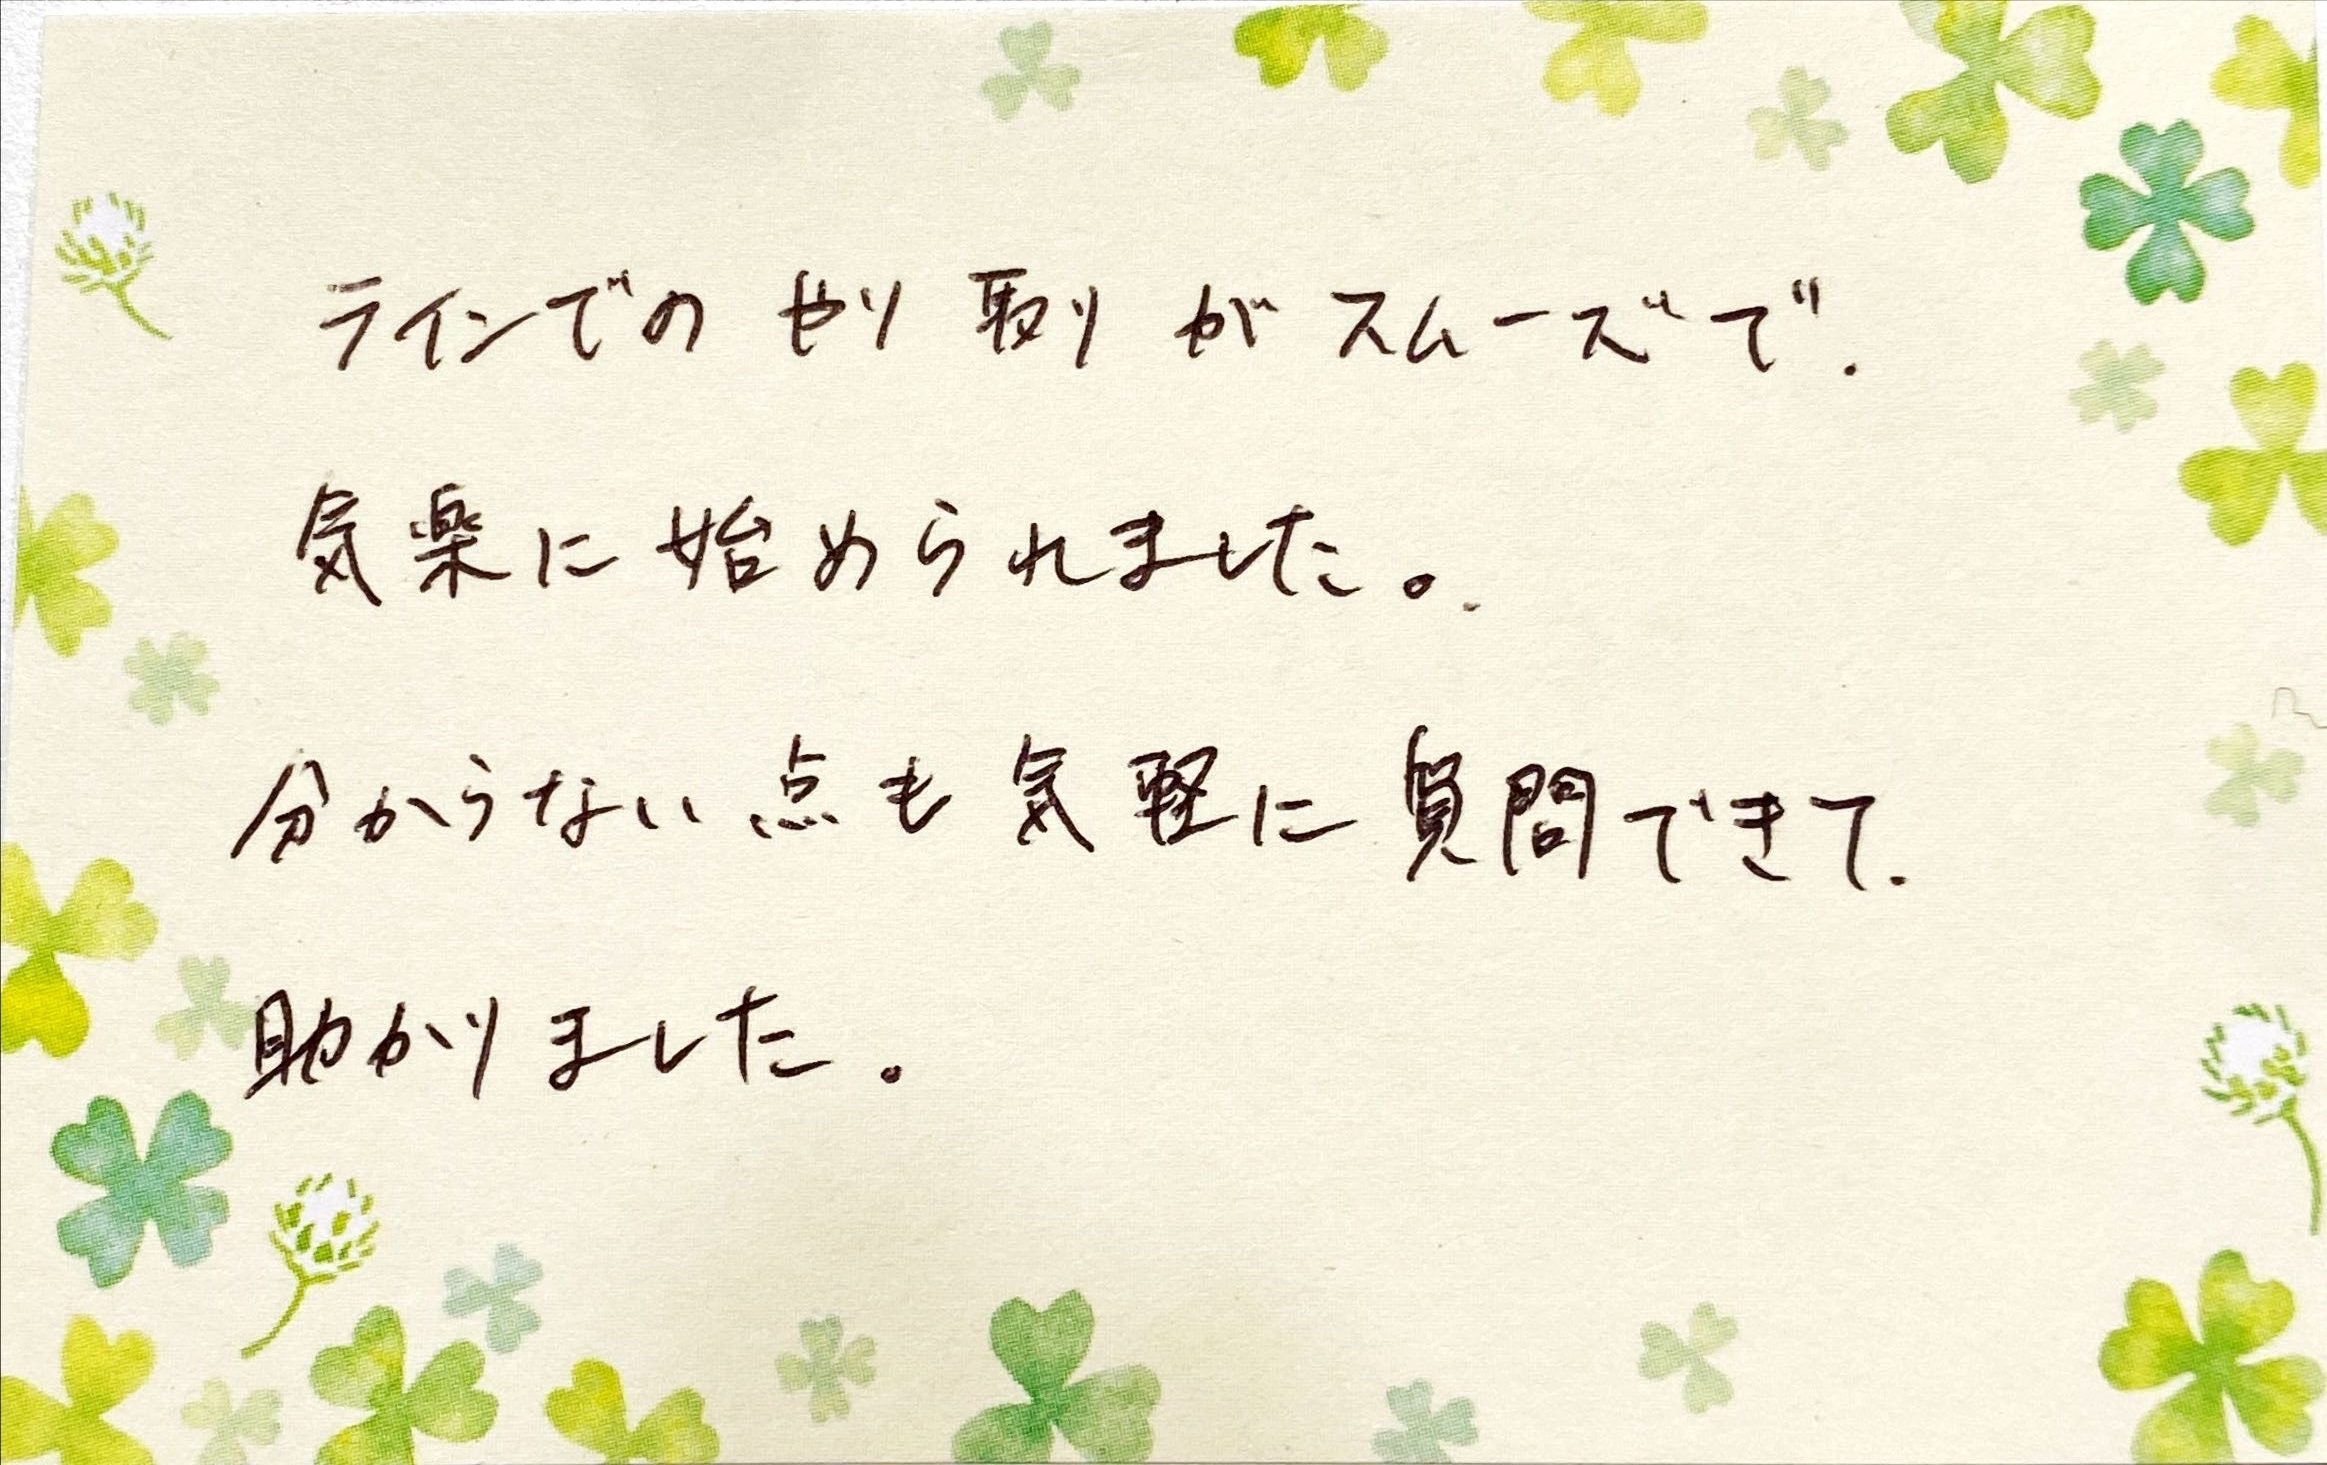 ラインでのやり取りがスムーズで.
気楽に始められました。
分からない点も気軽に質問できて.
助かりました。